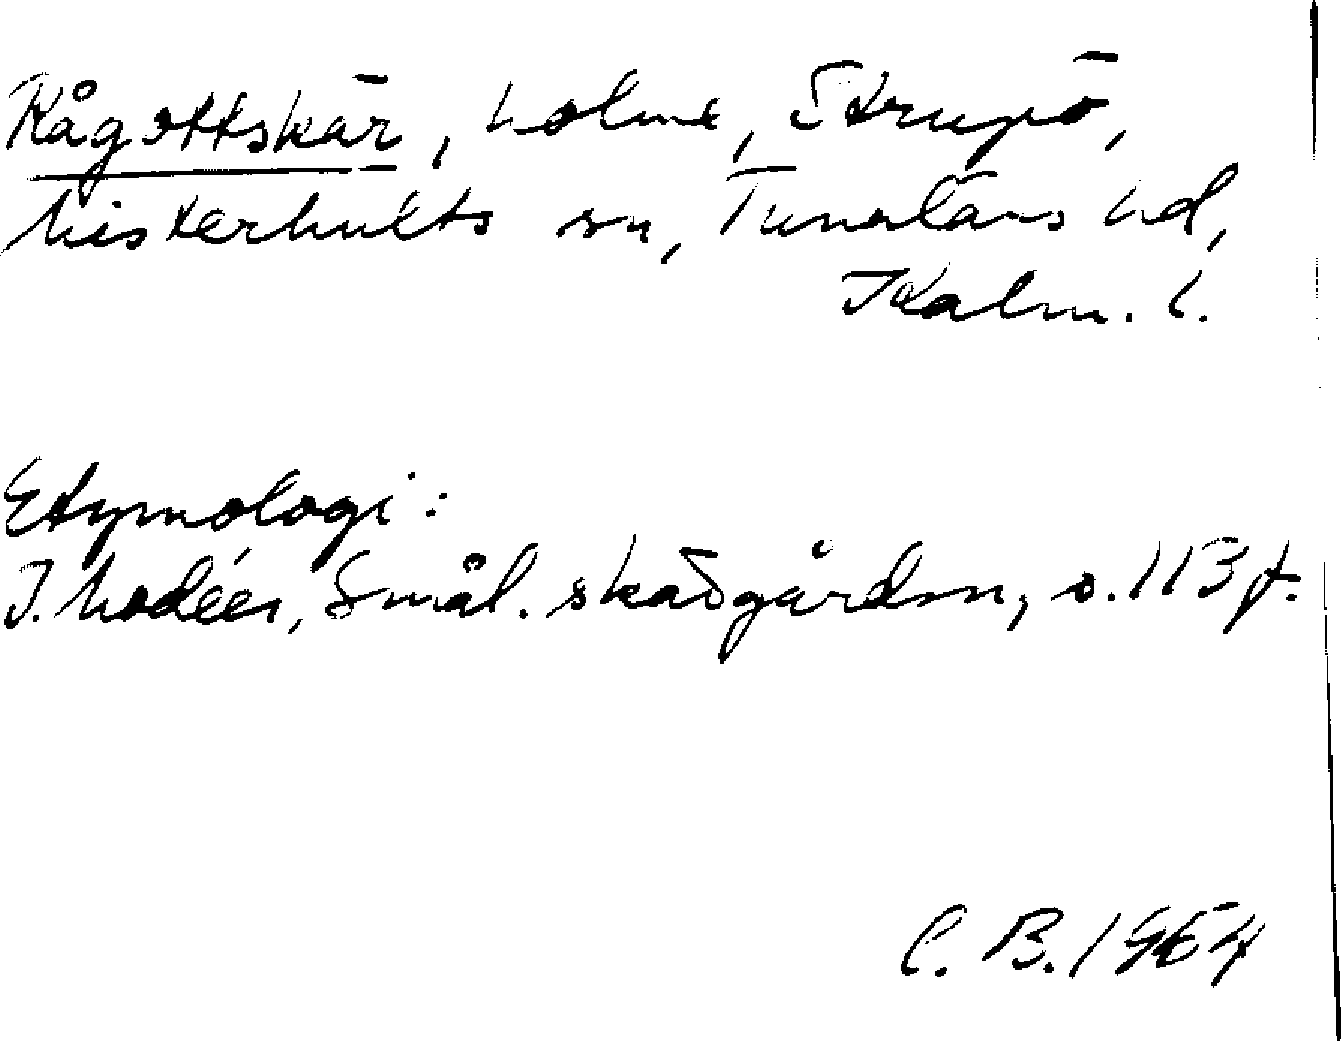 Kågottskär, holme, Strupö,
Misterhults sn, Tunaläns hd,
Kalm. l.
Etymologi:
I. Modéer, Smål. skärgården, s. 113 f.
C. B. 1954